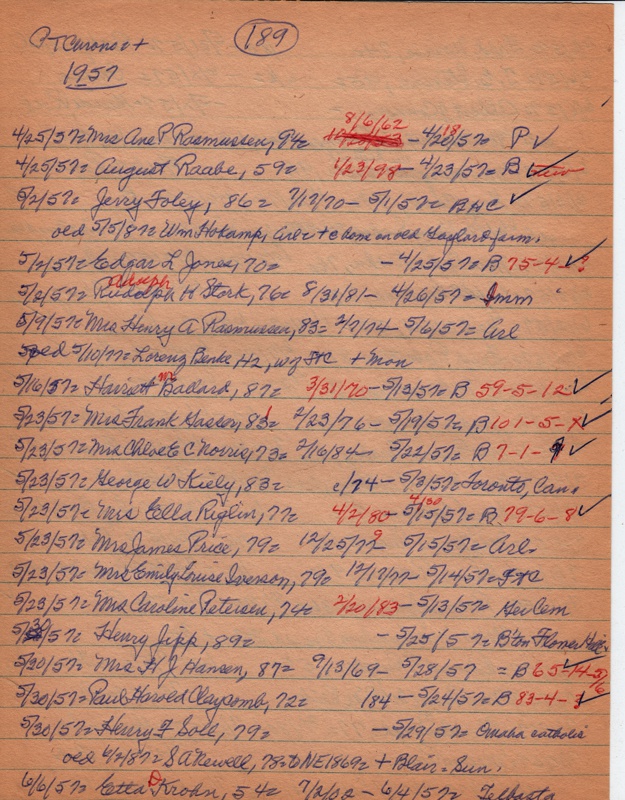 PT Chronol + 189
1957
4/25/57= Mrs Ane P Rasmussen, 94= 8/6/62 - 4/20/57= 18 P ✓
4/25/57= August Raabe, 59= 1/23/98 - 4/23/57= B ✓
5/2/57= Jerry Foley, 86= 7/17/70 - 5/1/57= BHC ✓
oed 5/5/87= Wm Hokamp, Arl= + c home on old Gaylord farm.
5/2/57= Edgar L Jones, 70= - 4/25/57= B 75-4-? ✓
5/2/57= Rudolph Adolph H Stork, 76= 8/31/81 - 4/26/57= Imm
5/9/57= Mrs Henry A Rasmussen, 83= 2/7/74 - 5/6/57= Arl
oed 5/10/77= Lorenz Benke H2, w/ FtC + Mon
5/16/57= Harriett Mc Ballard, 87= 3/31/70 - 5/13/57= B 59-5-12 ✓
5/23/57= Mrs Frank 83= 2/23/76 - 5/19/57= B 101-5-X ✓
5/23/57= Mrs Chloe E C Norris, 73= 2/16/84 - 5/22/57= B 7-1- ✓
5/23/57= George W Kiely, 83= c/74 - 5/3/57= Toronto, Can.
5/23/57= Mrs Ella Riglin, 77= 4/2/80 - 4/30 5/15/57= B 79-6-8 ✓
5/23/57= Mrs James Price, 79= 12/25/77 9 5/15/57= Arl.
5/23/57= Mrs Emily Louise Iverson, 79= 12/17/77 - 5/14/57= FtC
5/23/57= Mrs Caroline Petersen, 74= 2/20/83 - 5/13/57= Her Cem
5/30/57= Henry Jipp, 89= - 5/25/57= B'ton Flower
5/30/57= Mrs H J Hansen, 87= 9/13/69 - 5/28/57 = B 65-14-5/6 ✓
5/30/57= Paul Harold Claycomb, 72= /84 - 5/24/57= B 83-4-3 ✓
5/30/57= Henry F Soll, 79= - 5/29/57= Omaha catholic
oed 4/2/87= S A Newell, 78= to NE 1869= + Blair = Sun.
6/6/57= Etta D Krohn, 54= 7/2/02 - 6/4/57= Telbasta